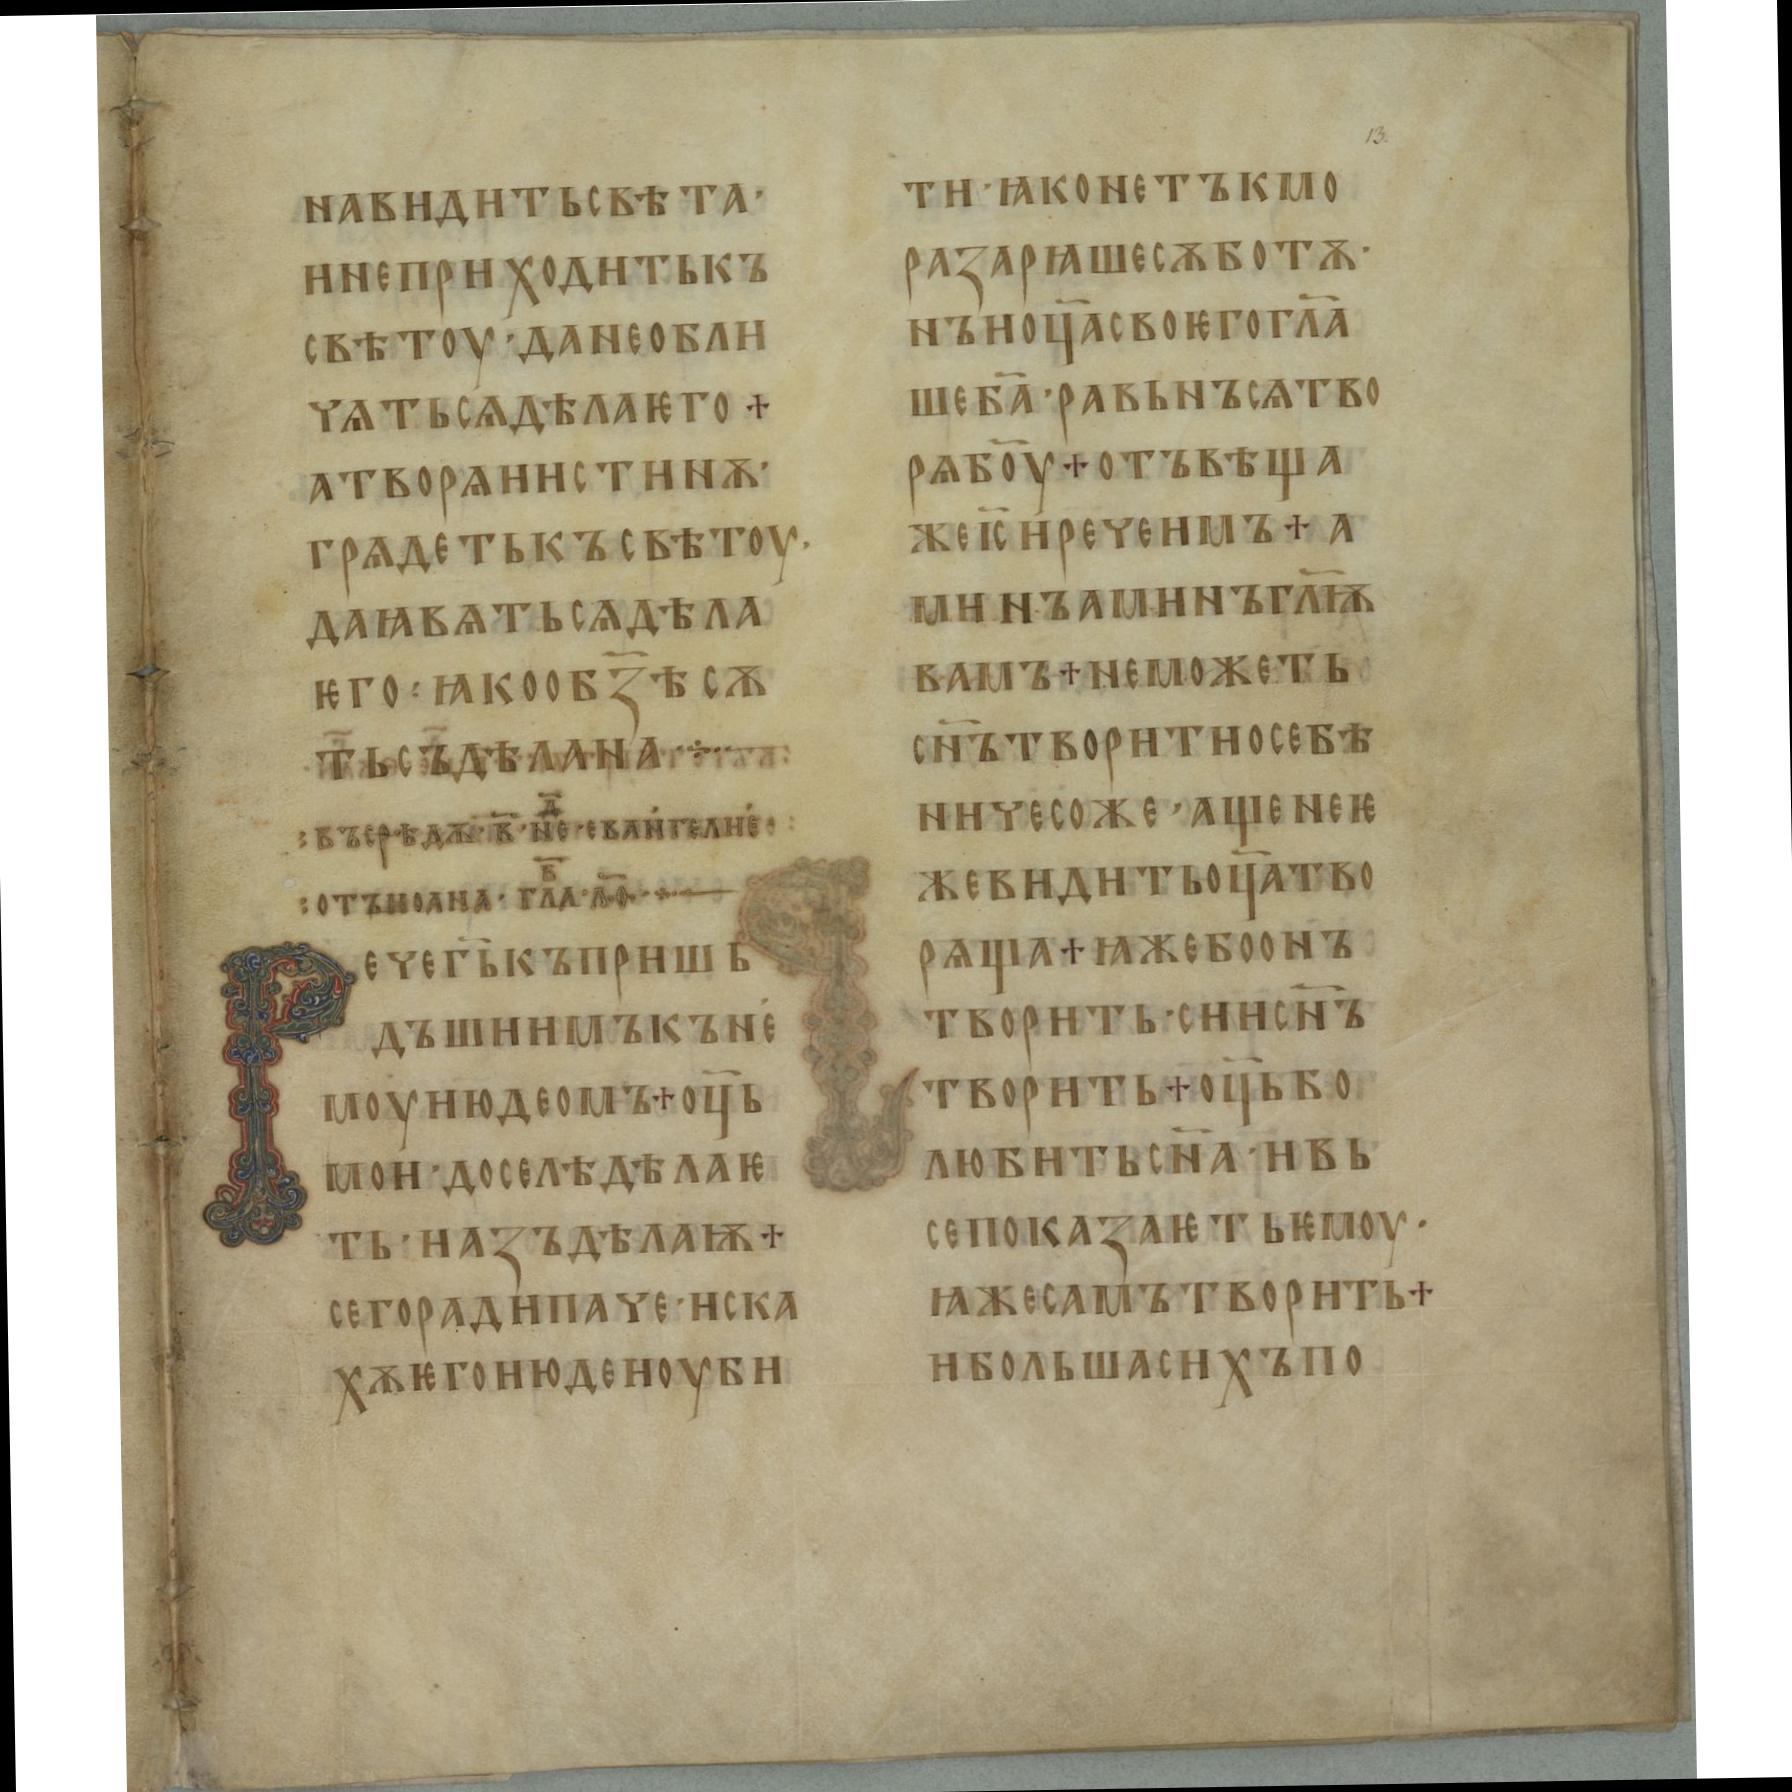 13
навидитьсвѣта·
инеприходитькъ
свѣтоу·данеобли
чѧтьсѧдѣлаѥго +
атворѧиистинѫ·
грѧдетькъсвѣтоу·
даꙗвѧтьсѧдѣла
ѥго : ꙗкооб҃зѣсѫ
тьсъдѣлана ÷
: въсрѣдѫ· в҃· н҃е д҃· еваньгелие :
: отъиоана· гла в҃· л҃о· +
Рече г҃ькъпришь
дъшиимъкъне
моуиюдеомъ+оц҃ь
мои·доселѣдѣлаѥ
ть·иазъдѣлаѭ+
сегорадипаче·иска
хѫѥгоиюдеиоуби
ти·ꙗконетъкмо
разарꙗшесѫботѫ·
нъиоц҃асвоѥгогл҃а
шеб҃а·равьнъсѧтво
рѧб҃оу+отъвѣща
жеіс҃иречеимъ+а
минъаминъгл҃ѭ
вамъ+неможеть
сн҃ътворитиосебѣ
ничесоже·ащенеѥ
жевидитьоц҃атво
рѧща+ꙗжебоонъ
творить·сиисн҃ъ
творить+оц҃ьбо
любитьсн҃а·ивь
сепоказаѥтьѥмоу·
ꙗжесамътворить+
ибольшасихъпо